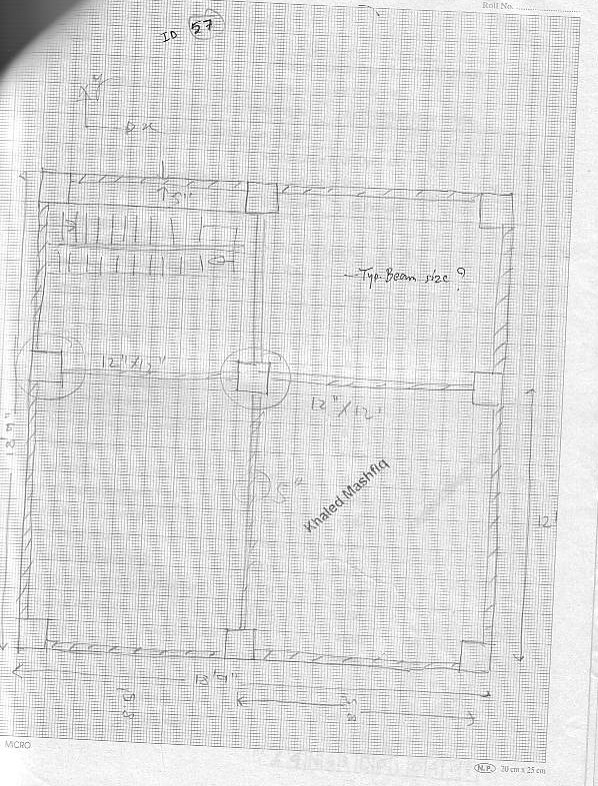 Roll No.
ID 57
x
5"
- Typ. Beam size ?
12"x12"
12"x12"
5"
Khaled Mashfiq
12'
13'9"
MICRO
N.P. 20 cm x 25 cm